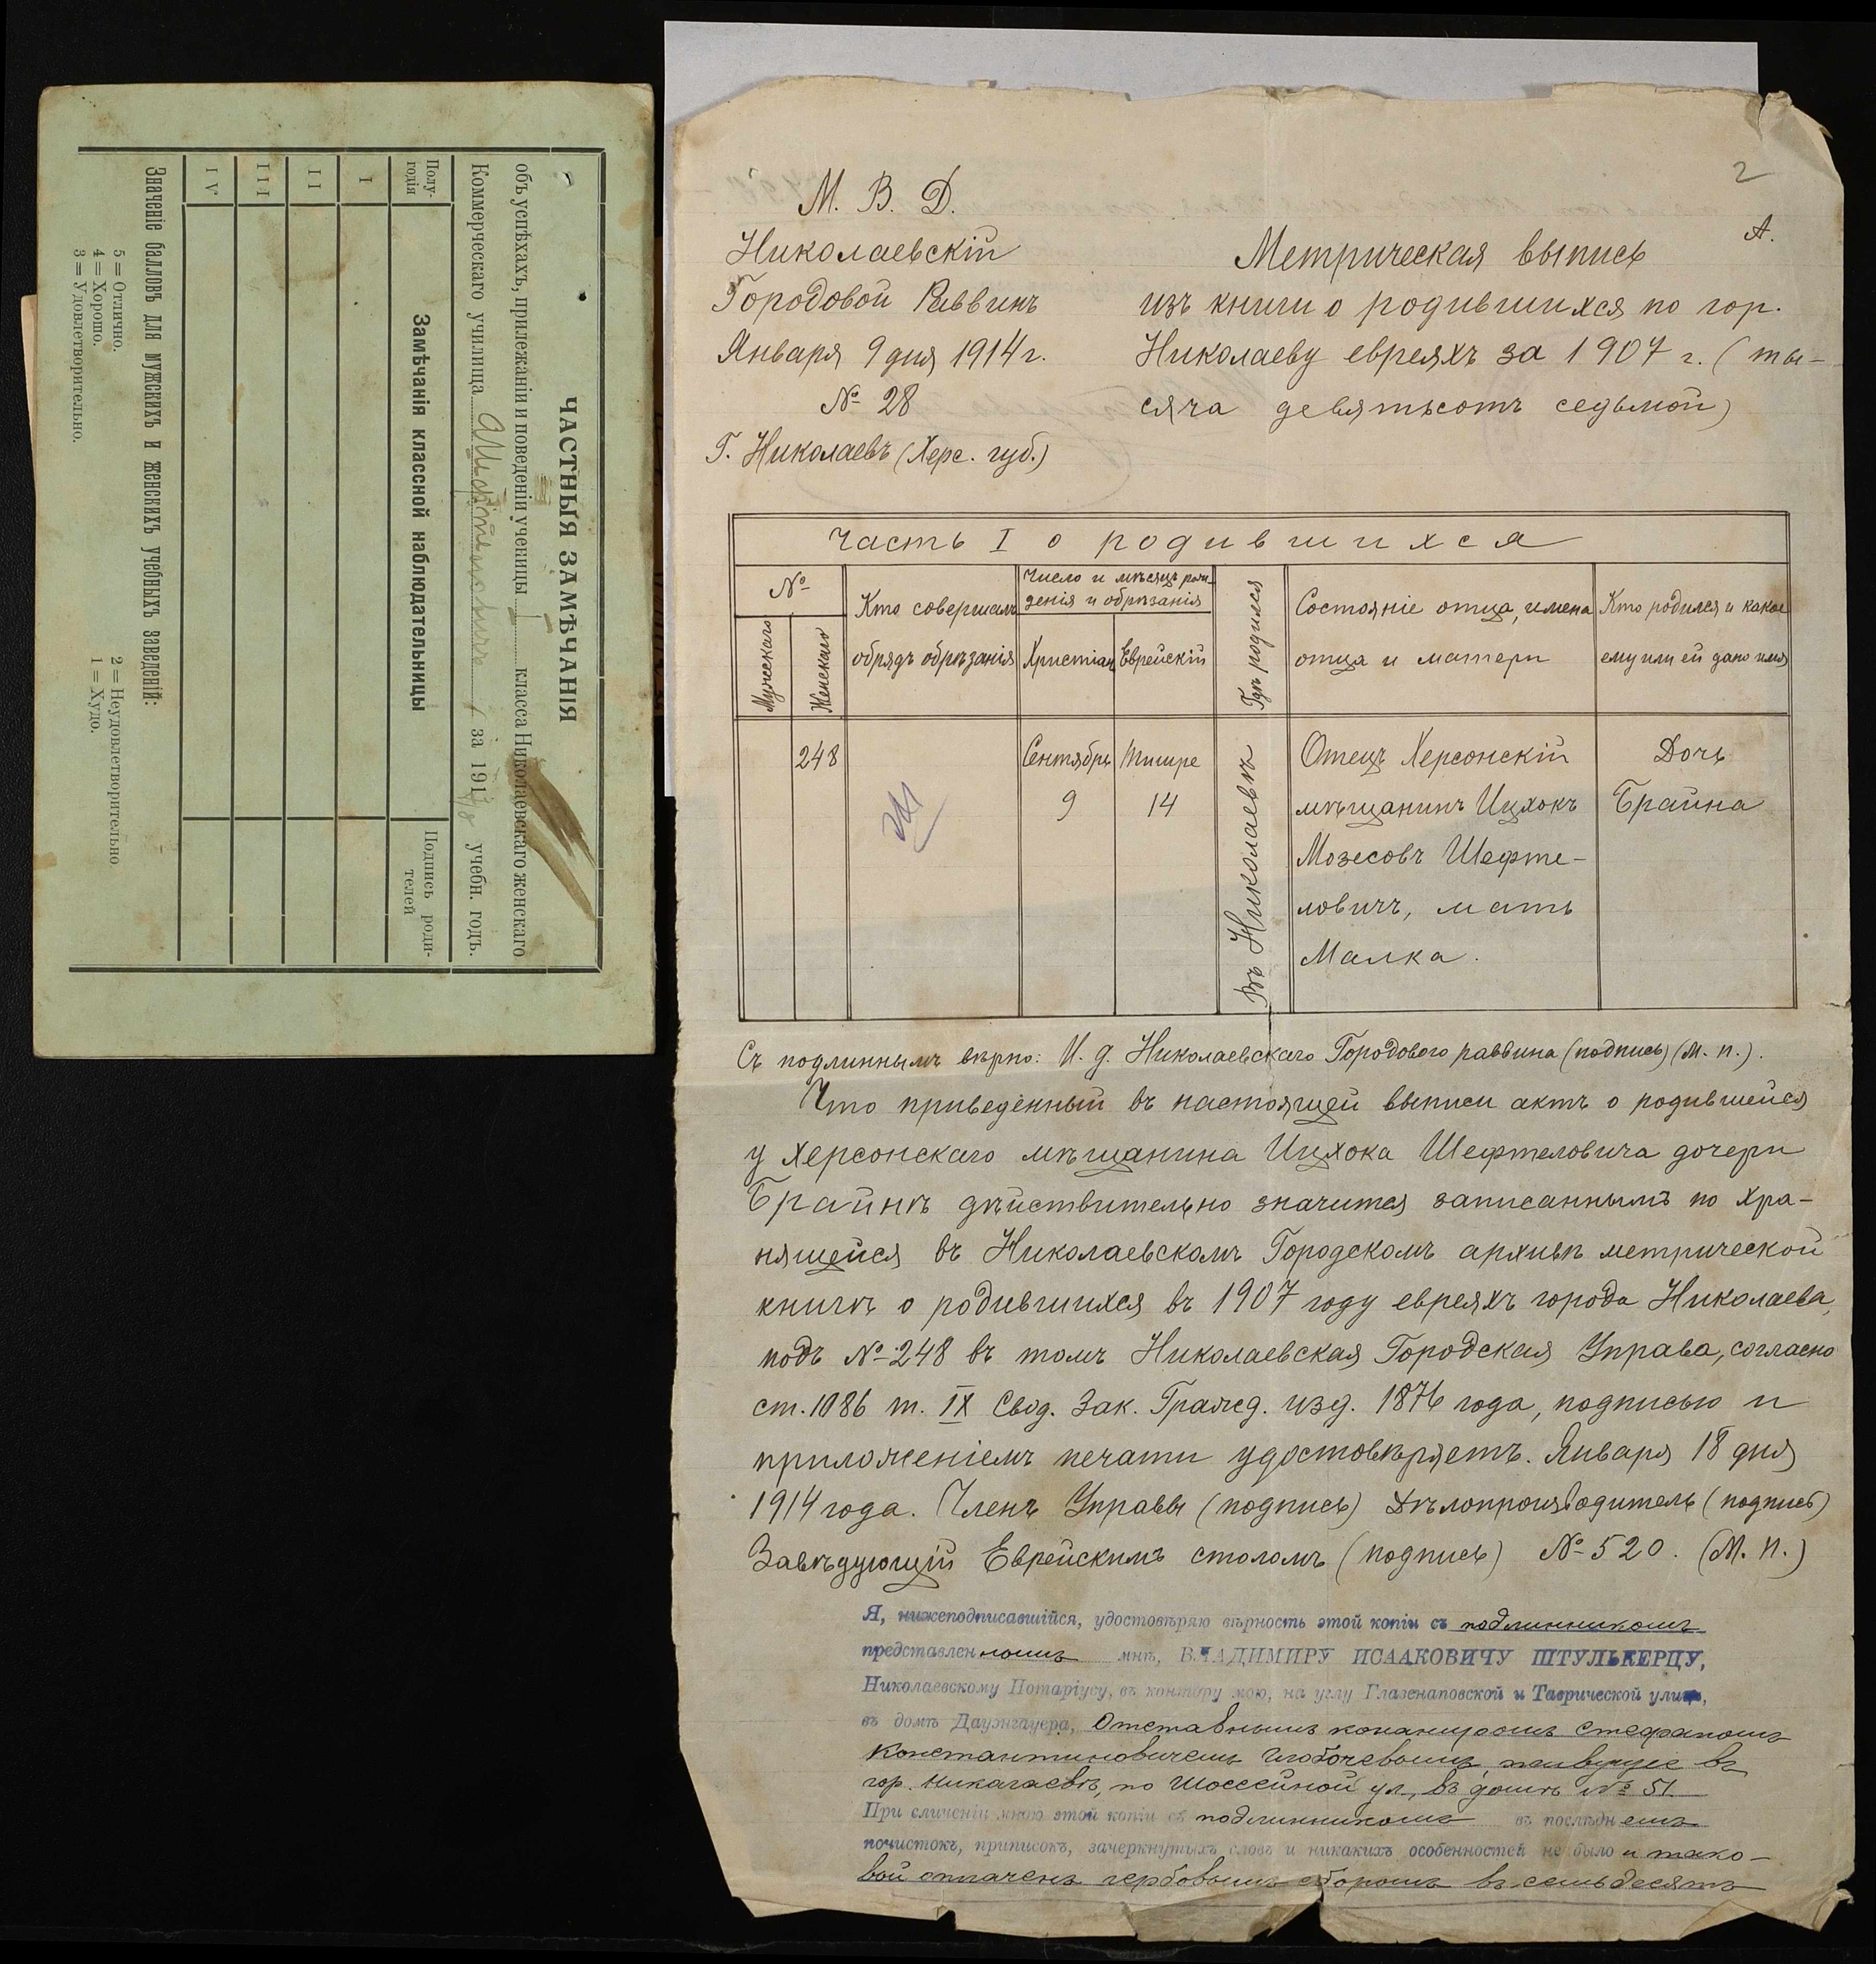 ЧАСТНЫЯ ЗАМѢЧАНІЯ
объ успѣхахъ, прилежаніи и поведеніи ученицы I класса Николаевскаго женскаго
Коммерческаго училища за 191 учебн. годъ.
Полу-
годія
Замѣчанія классной наблюдательницы
Подпись роди-
телей
I
II
III
IV
Значеніе балловъ для мужскихъ и женскихъ учебныхъ заведеній:
5 = Отлично.
4 = Хорошо.
3 = Удовлетворительно.
2 = Неудовлетворительно
1 = Худо.
2
А.
М. В. Д.
Николаевскій
Городовой Раввинъ
Января 9 дня 1914 г.
№ 28
Г. Николаевъ (Херс. губ.)
Метрическая выпись
изъ книги о родившихся по гор.
Николаеву евреяхъ за 1907 г. (ты-
сяча девятьсотъ седьмой)
Часть I о родившихся
№
Мужескаго
Женскаго
Кто совершалъ
обрядъ обрѣзанія
Число и мѣсяцъ рож-
денія и обрѣзанія
Христіан
Еврейскій
Гдѣ родился
Состояніе отца, имена
отца и матери
Кто родился и какое
ему или ей дано имя
248
Сентябрь
9
Тишре
14
въ Николаевѣ
Отецъ Херсонскій
мѣщанинъ Ицхокъ
Мозесовъ Шефте-
ловичъ, мать
Малка.
Дочь
Брайна
Съ подлиннымъ вѣрно: И. д. Николаевскаго Городового раввина (подпись) (М. п.).
Что приведенный въ настоящей выписи актъ о родившейся
у херсонскаго мѣщанина Ицхока Шефтеловича дочери
Брайнѣ дѣйствительно значится записаннымъ по хра-
нящейся въ Николаевскомъ Городскомъ архивѣ метрической
книгѣ о родившихся въ 1907 году евреяхъ города Николаева,
подъ № 248 въ томъ Николаевская Городская Управа, согласно
ст. 1086 т. IX Свод. Зак. Гражд. изд. 1876 года, подписью и
приложеніемъ печати удостовѣряетъ. Января 18 дня
1914 года. Членъ Управы (подпись) Дѣлопроизводитель (подпись)
Завѣдующій Еврейскимъ столомъ (подпись) № 520. (М. П.)
Я, нижеподписавшійся, удостовѣряю вѣрность этой копіи съ подлинникомъ
представленномъ мнѣ, ВЛАДИМИРУ ИСААКОВИЧУ ШТУЛЬКЕРЦУ,
Николаевскому Нотаріусу, въ контору мою, на углу Глазенаповской и Таврической улицъ,
въ домѣ Дауэнгауера, Отставнымъ канониромъ Стефаномъ
Константиновичемъ живущ въ
гор. Николаевѣ, по Шоссейной ул., въ домѣ № 51.
При сличеніи мною этой копіи съ подлинникомъ въ послѣднемъ
почистокъ, приписокъ, зачеркнутыхъ словъ и никакихъ особенностей не было и тако-
вой оплаченъ гербовымъ сборомъ въ семьдесятъ